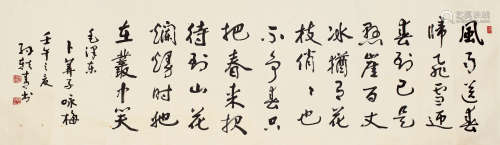 風雨送春
歸飛雪迎
春到已是
懸崖百丈
冰猶有花
枝俏俏也
不争春只
把春来报
待到山花
爛熳时她
在叢中笑
毛澤東
卜筭子咏梅
壬午之夏
孙轶青书